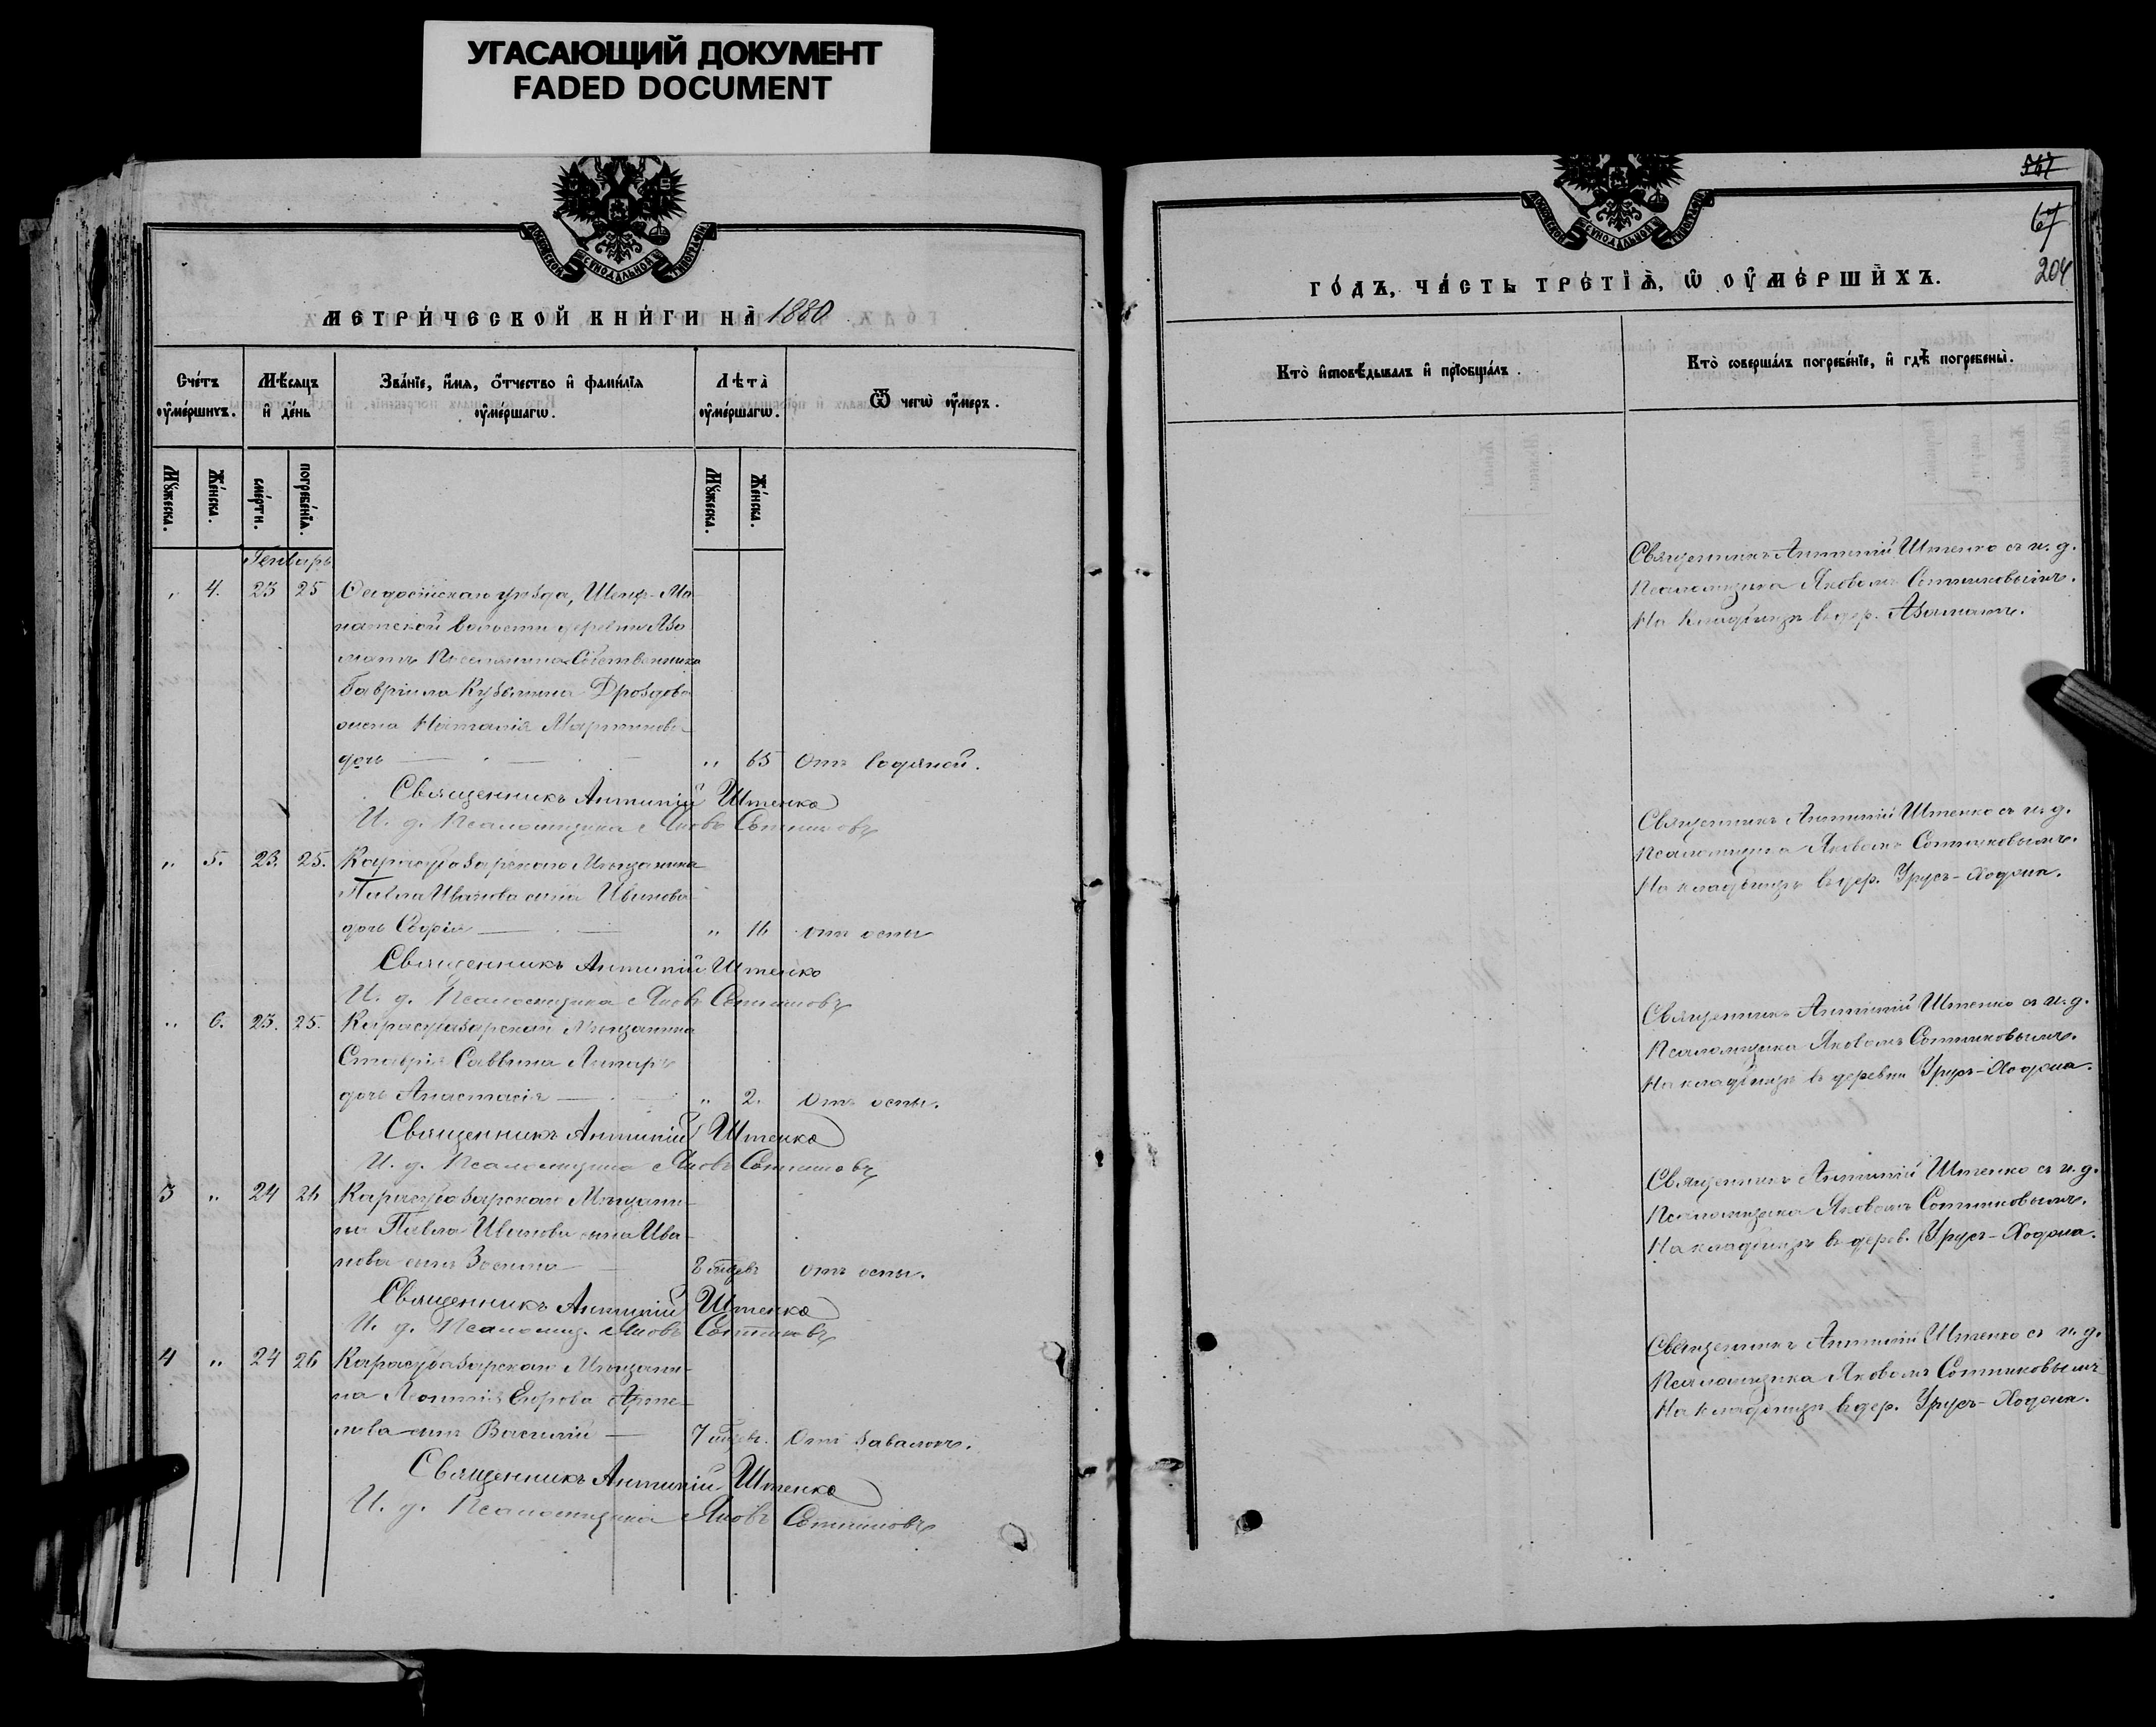 УГАСАЮЩИЙ ДОКУМЕНТ
FADED DOCUMENT
МЕТРИ́ЧЕСКОЙ КНИ́ГИ НА̀ 1880
Сче́тъ ᲂу҆ме́ршихъ.
Мѣ́сяцъ и҆ де́нь
Зва́нїе, и҆́мѧ, ѻ҆́тчество и҆ фами́лїѧ ᲂу҆ме́ршагѡ.
Лѣ́та̀ ᲂу҆ме́ршагѡ.
Ѿ чегѡ̀ ᲂу҆́меръ.
Мꙋ́жеска.
Же́нска.
сме́рти.
погребе́нїѧ.
Мꙋ́жеска.
Же́нска.
Генварь
„ 4. 23 25 Ѳеодосійскаго уѣзда, Шейх-Мо-
натской волости деревни Аза
матъ Поселянина Собственника
Гавріила Кузьмина Дроздова
жена Наталія Мартинова
дочь „ 65 Отъ водяной.
Священникъ Антиній Штенко
И. д. Псаломщика Яковъ Сотниковъ
„ 5. 23. 25. Карасубазарскаго Мѣщанина
Павла Иванова сына Иванова
дочь Софія „ 16 отъ оспы
Священникъ Антиній Штенко
И. д. Псаломщика Яковъ Сотниковъ
„ 6. 23. 25. Карасубазарскаго Мѣщанина
Ставрія Саввина
дочь Анастасія „ 2. Отъ оспы.
Священникъ Антиній Штенко
И. д. Псаломщика Яковъ Сотниковъ
3 „ 24 26 Карасубазарскаго Мѣщани-
на Павла Иванова сына Ива-
нова сынъ Зосима 8 мѣсяцевъ отъ оспы.
Священникъ Антиній Штенко
И. д. Псаломщ. Яковъ Сотниковъ
4 „ 24 26 Карасубазарскаго Мѣщани-
на Леонтія Егорова Арте-
мова сынъ Василій 7 мѣсяцевъ. Отъ завалокъ.
Священникъ Антиній Штенко
И. д. Псаломщика Яковъ Сотниковъ
567
67
204
ГО́ДЪ, ЧА́СТЬ ТРЕ́ТЇѦ, Ѡ҆ ᲂУ҆МЕ́РШИХЪ.
Кто̀ и҆сповѣ́дывалъ и҆ прїѡбща́лъ.
Кто̀ соверша́лъ погребе́нїе, и҆ гдѣ̀ погребены̀.
Священникъ Антиній Штенко съ и. д.
Псаломщика Яковомъ Сотниковымъ.
На кладбищѣ въ дер. Азаматъ.
Священникъ Антиній Штенко съ и. д.
Псаломщика Яковомъ Сотниковымъ.
На кладбищѣ въ дер. Урусъ-Ходжа.
Священникъ Антиній Штенко съ и. д.
Псаломщика Яковомъ Сотниковымъ.
На кладбищѣ въ деревни Урусъ-Ходжа.
Священникъ Антиній Штенко съ и. д.
Псаломщика Яковомъ Сотниковымъ.
На кладбищѣ въ дерев. Урусъ-Ходжа.
Священникъ Антиній Штенко съ и. д.
Псаломщика Яковомъ Сотниковымъ
На кладбищѣ въ дер. Урусъ-Ходжа.